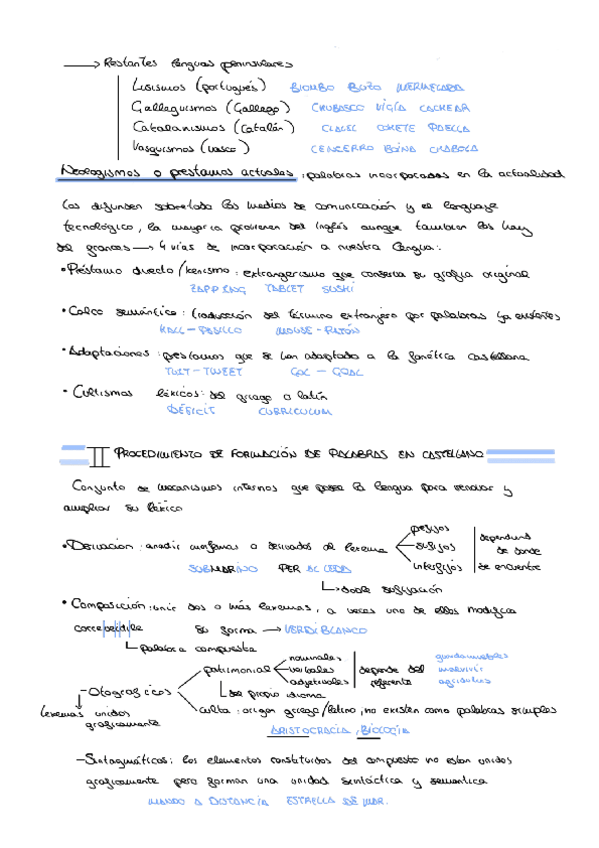 → Restantes lenguas peninsulares
Lusismos (portugués) BIOMBO BUZO MERMELADA
Galleguismos (Gallego) CHUBASCO VIGÍA CACHEAR
Catalanismos (Catalán) CLAVEL COHETE PAELLA
Vasquismos (Vasco) CENCERRO BOINA CHABOLA
Neologismos o préstamos actuales: palabras incorporadas en la actualidad
Los difunden sobretodo los medios de comunicación y el lenguaje
tecnológico, la mayoría provienen del inglés aunque también los hay
del francés → 4 vías de incorporación a nuestra lengua:
• Préstamo directo/xenismo: extranjerismo que conserva su grafía original
ZAPPING TABLET SUSHI
• Calco semántico: traducción del término extranjero por palabras ya existentes
HALL-PASILLO MOUSE-RATÓN
• Adaptaciones: préstamos que se han adaptado a la fonética castellana
TUIT-TWEET GOL-GOAL
• Cultismos léxicos: del griego o latín
DÉFICIT CURRICULUM
II PROCEDIMIENTO DE FORMACIÓN DE PALABRAS EN CASTELLANO
Conjunto de mecanismos internos que posee la lengua para renovar y
ampliar su léxico
• Derivación: añadir morfemas o derivados al lexema
prefijos
sufijos
interfijos
dependiendo
de donde
se encuentre
SUBMARINO
→ doble sufijación
• Composición: unir dos o más lexemas, a veces uno de ellos modifica
su forma → VERDIBLANCO
→ palabra compuesta
- Ortográficos
lexemas unidos
gráficamente
patrimonial
nominales
verbales
adjetivales
depende del
referente
guardamuebles
malvivir
agridulces
→ de propio idioma
culta: origen griego/latino, no existen como palabras simples
ARISTOCRACIA, BIOLOGÍA
- Sintagmáticos: los elementos constituidos del compuesto no están unidos
gráficamente pero forman una unidad sintáctica y semántica
MANDO A DISTANCIA ESTRELLA DE MAR.